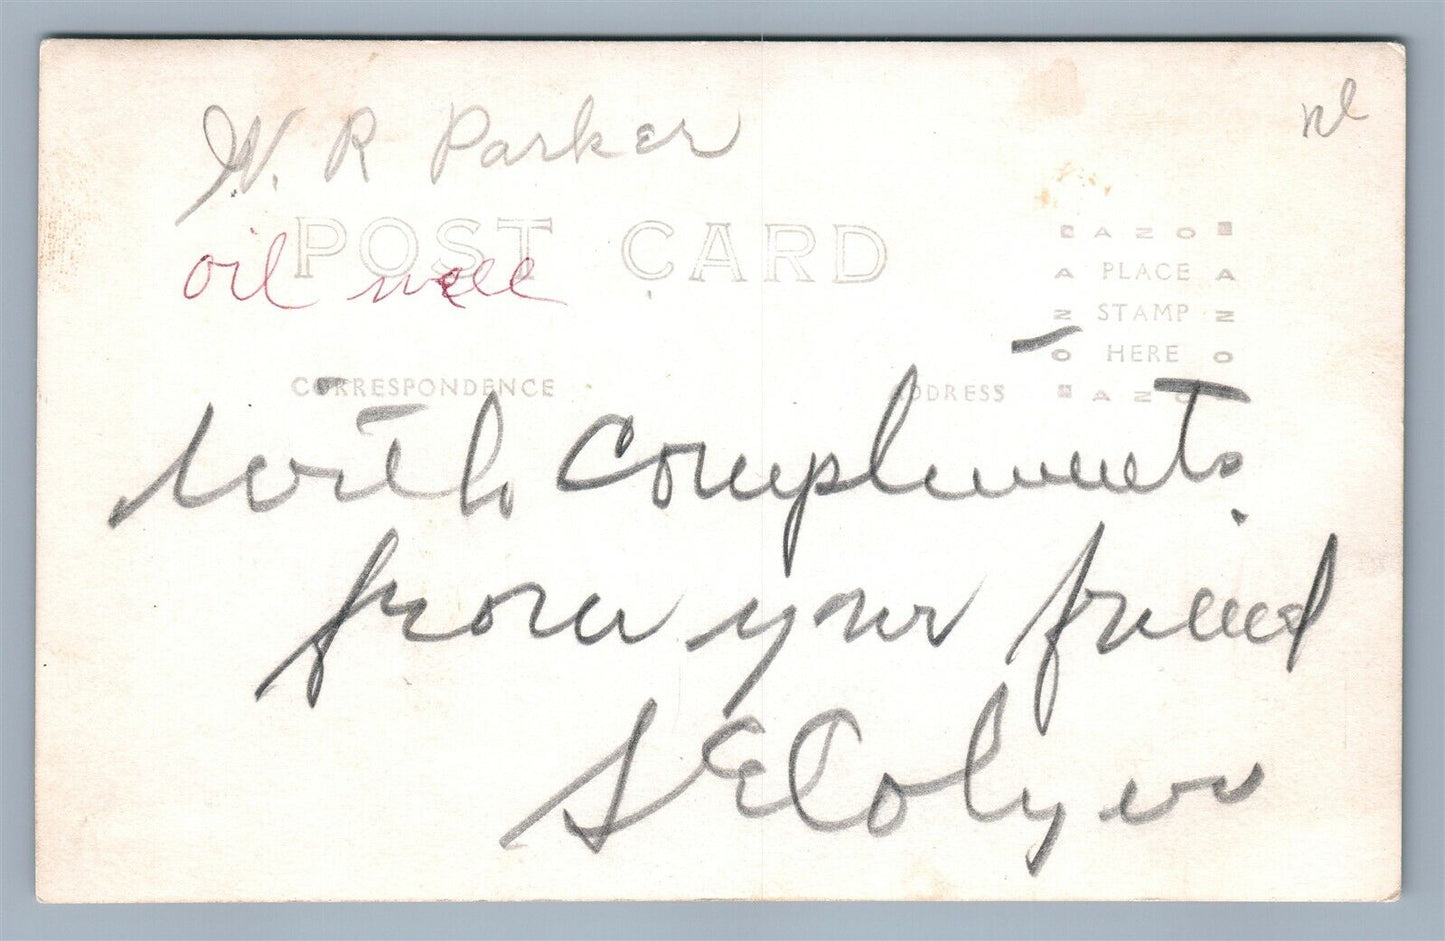 W. R Parker
nl
oil well
POST CARD
AZO
PLACE
STAMP
HERE
AZO
CORRESPONDENCE
ADDRESS
with Compliments
from your friend
S E Colyer